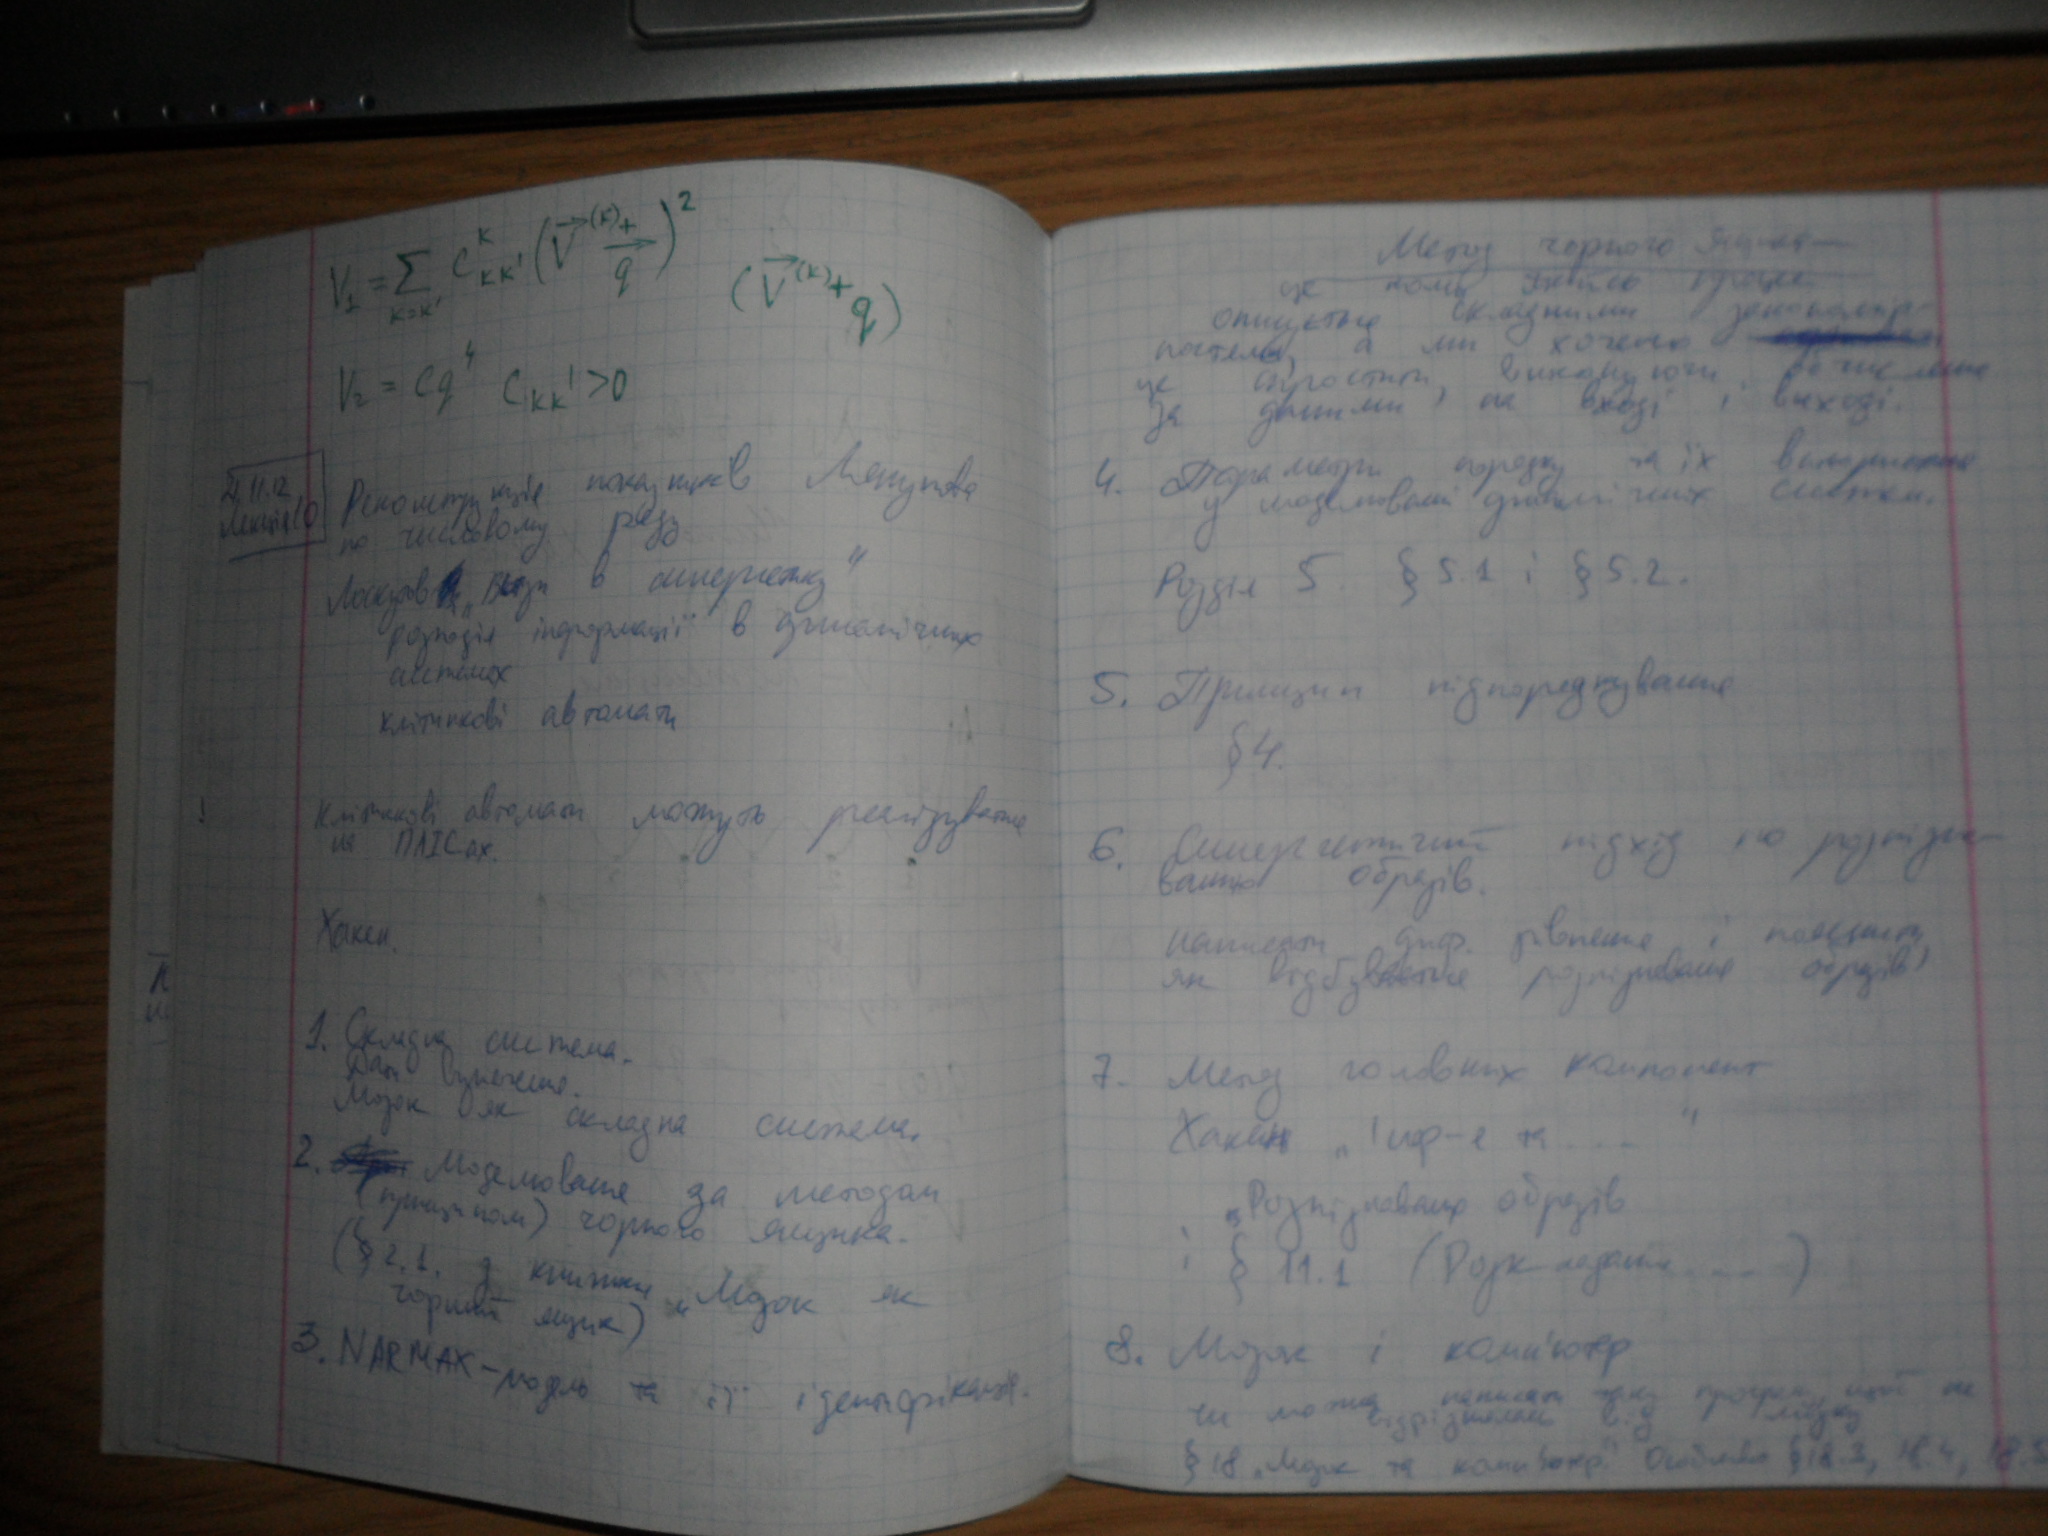 V₁ = Σ C^K_{KK'} (V⃗^{(K)+} q⃗)²
K=K'
(V⃗^{(K)+} q)
V₂ = Cq⁴ C_{KK'} > 0
21.11.12
Лекція 10
Реконструкція показників Ляпунова
по числовому ряду
Лоскутов „Вст в синергетику"
розподіл інформації в динамічних
системах
клітинкові автомати
! Клітинкові автомати можуть реалізуватися
на ПЛІСах.
Хакен.
1. Складна система.
Дати визначення.
Мозок як складна система.
2. Моделювання за методом
(принципом) чорного ящика.
(§ 2.1. з книжки „Мозок як
чорний ящик)
3. NARMAX-модель та її ідентифікація.
Метод чорного ящика —
це коли
описуються складними закономір-
ностями, а ми хочемо
це спростити, виконуючи обчислення
за даними на вході і виході.
4. Параметри порядку та їх використання
у моделюванні динамічних систем.
Розділ 5. § 5.1 і § 5.2.
5. Принцип підпорядкування
§4.
6. Синергетичний підхід до розпізна-
вання образів.
написати диф. рівняння і пояснити,
як відбувається розпізнавання образів
7. Метод головних компонент
Хакен „Інф-я та .... "
„Розпізнавання образів
і § 11.1 (Розкладання ......)
8. Мозок і комп'ютер
чи можна написати таку програму, щоб не
відрізняли від мозку
§ 18 „Мозок та комп'ютер" Особливо § 18.3, 18.4, 18.5